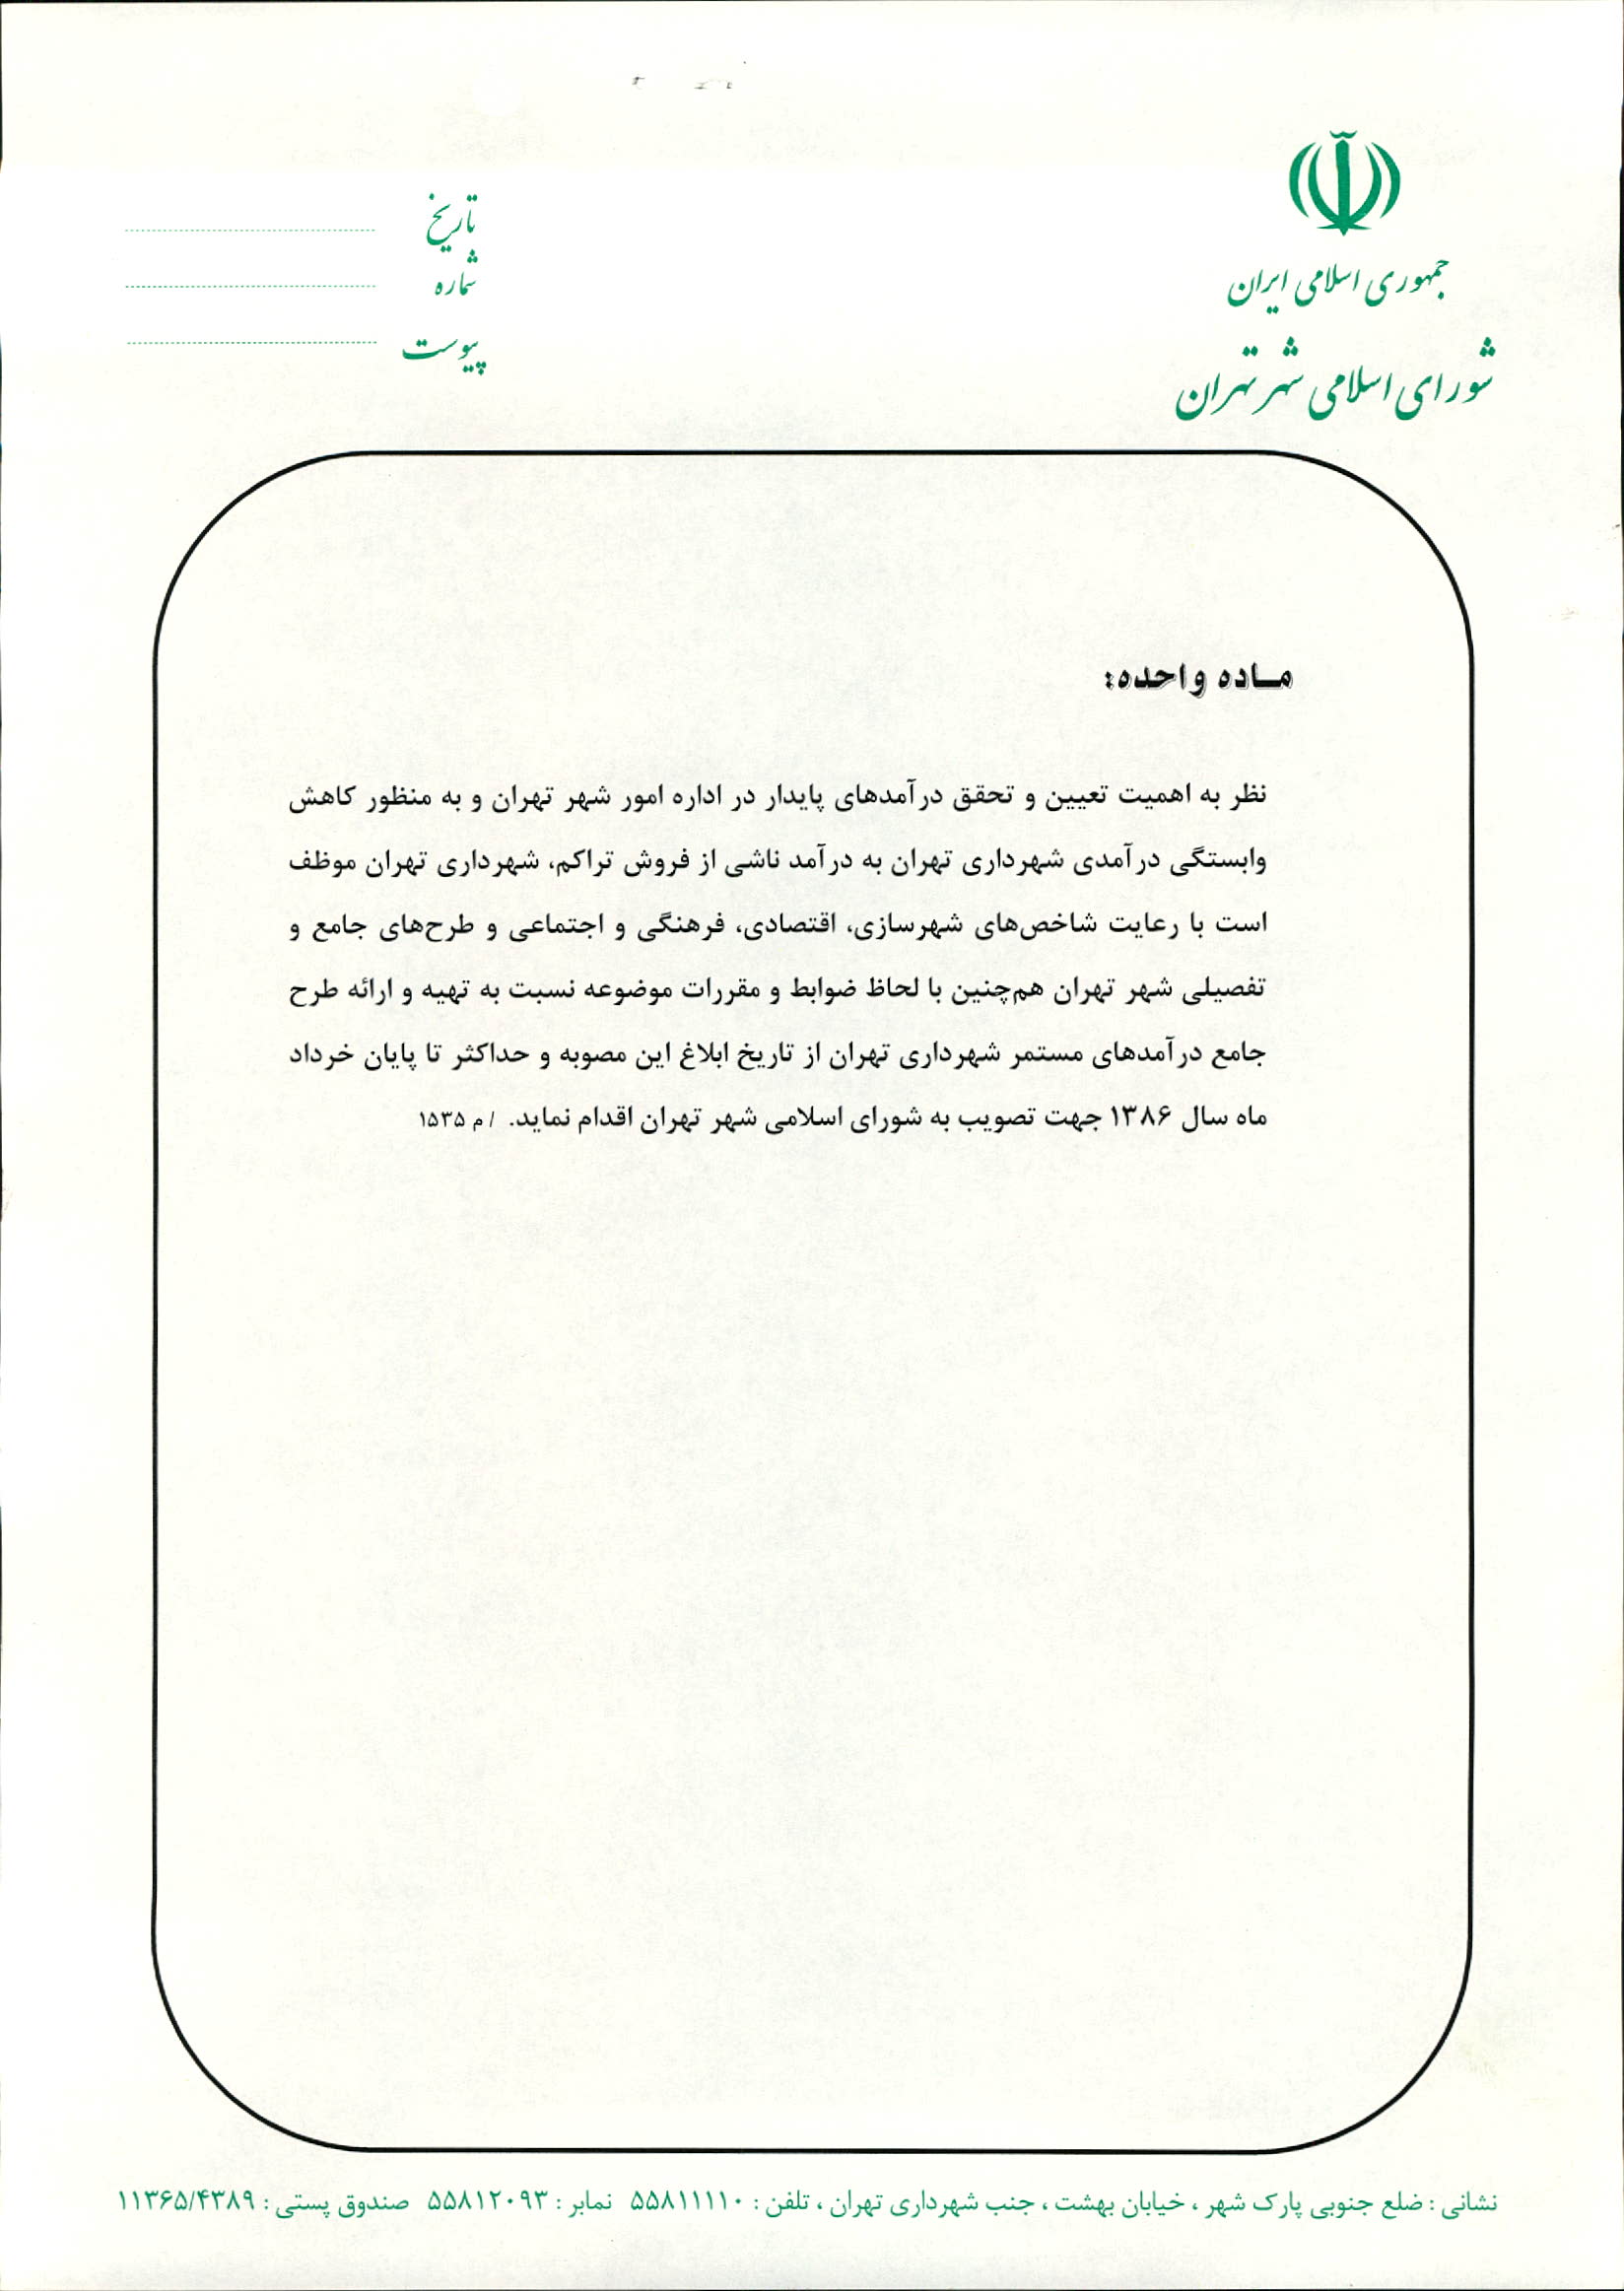 جمهوری اسلامی ایران
شورای اسلامی شهر تهران
تاریخ
شماره
پیوست
ماده واحده:
نظر به اهمیت تعیین و تحقق درآمدهای پایدار در اداره امور شهر تهران و به منظور کاهش
وابستگی درآمدی شهرداری تهران به درآمد ناشی از فروش تراکم، شهرداری تهران موظف
است با رعایت شاخص‌های شهرسازی، اقتصادی، فرهنگی و اجتماعی و طرح‌های جامع و
تفصیلی شهر تهران هم‌چنین با لحاظ ضوابط و مقررات موضوعه نسبت به تهیه و ارائه طرح
جامع درآمدهای مستمر شهرداری تهران از تاریخ ابلاغ این مصوبه و حداکثر تا پایان خرداد
ماه سال ۱۳۸۶ جهت تصویب به شورای اسلامی شهر تهران اقدام نماید. / م ۱۵۳۵
نشانی : ضلع جنوبی پارک شهر ، خیابان بهشت ، جنب شهرداری تهران ، تلفن : ۵۵۸۱۱۱۱۰ نمابر : ۵۵۸۱۲۰۹۳ صندوق پستی : ۱۱۳۶۵/۴۳۸۹